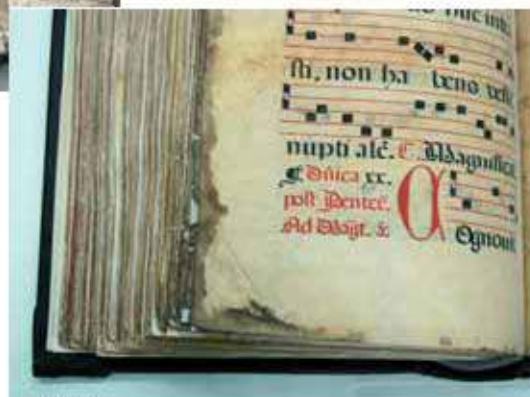 sti, non ha bens veste
nupti alē. C. Magnifica
¶ Dñica xx.
post Pentec̄.
Ad Magt. ā
Cognoui